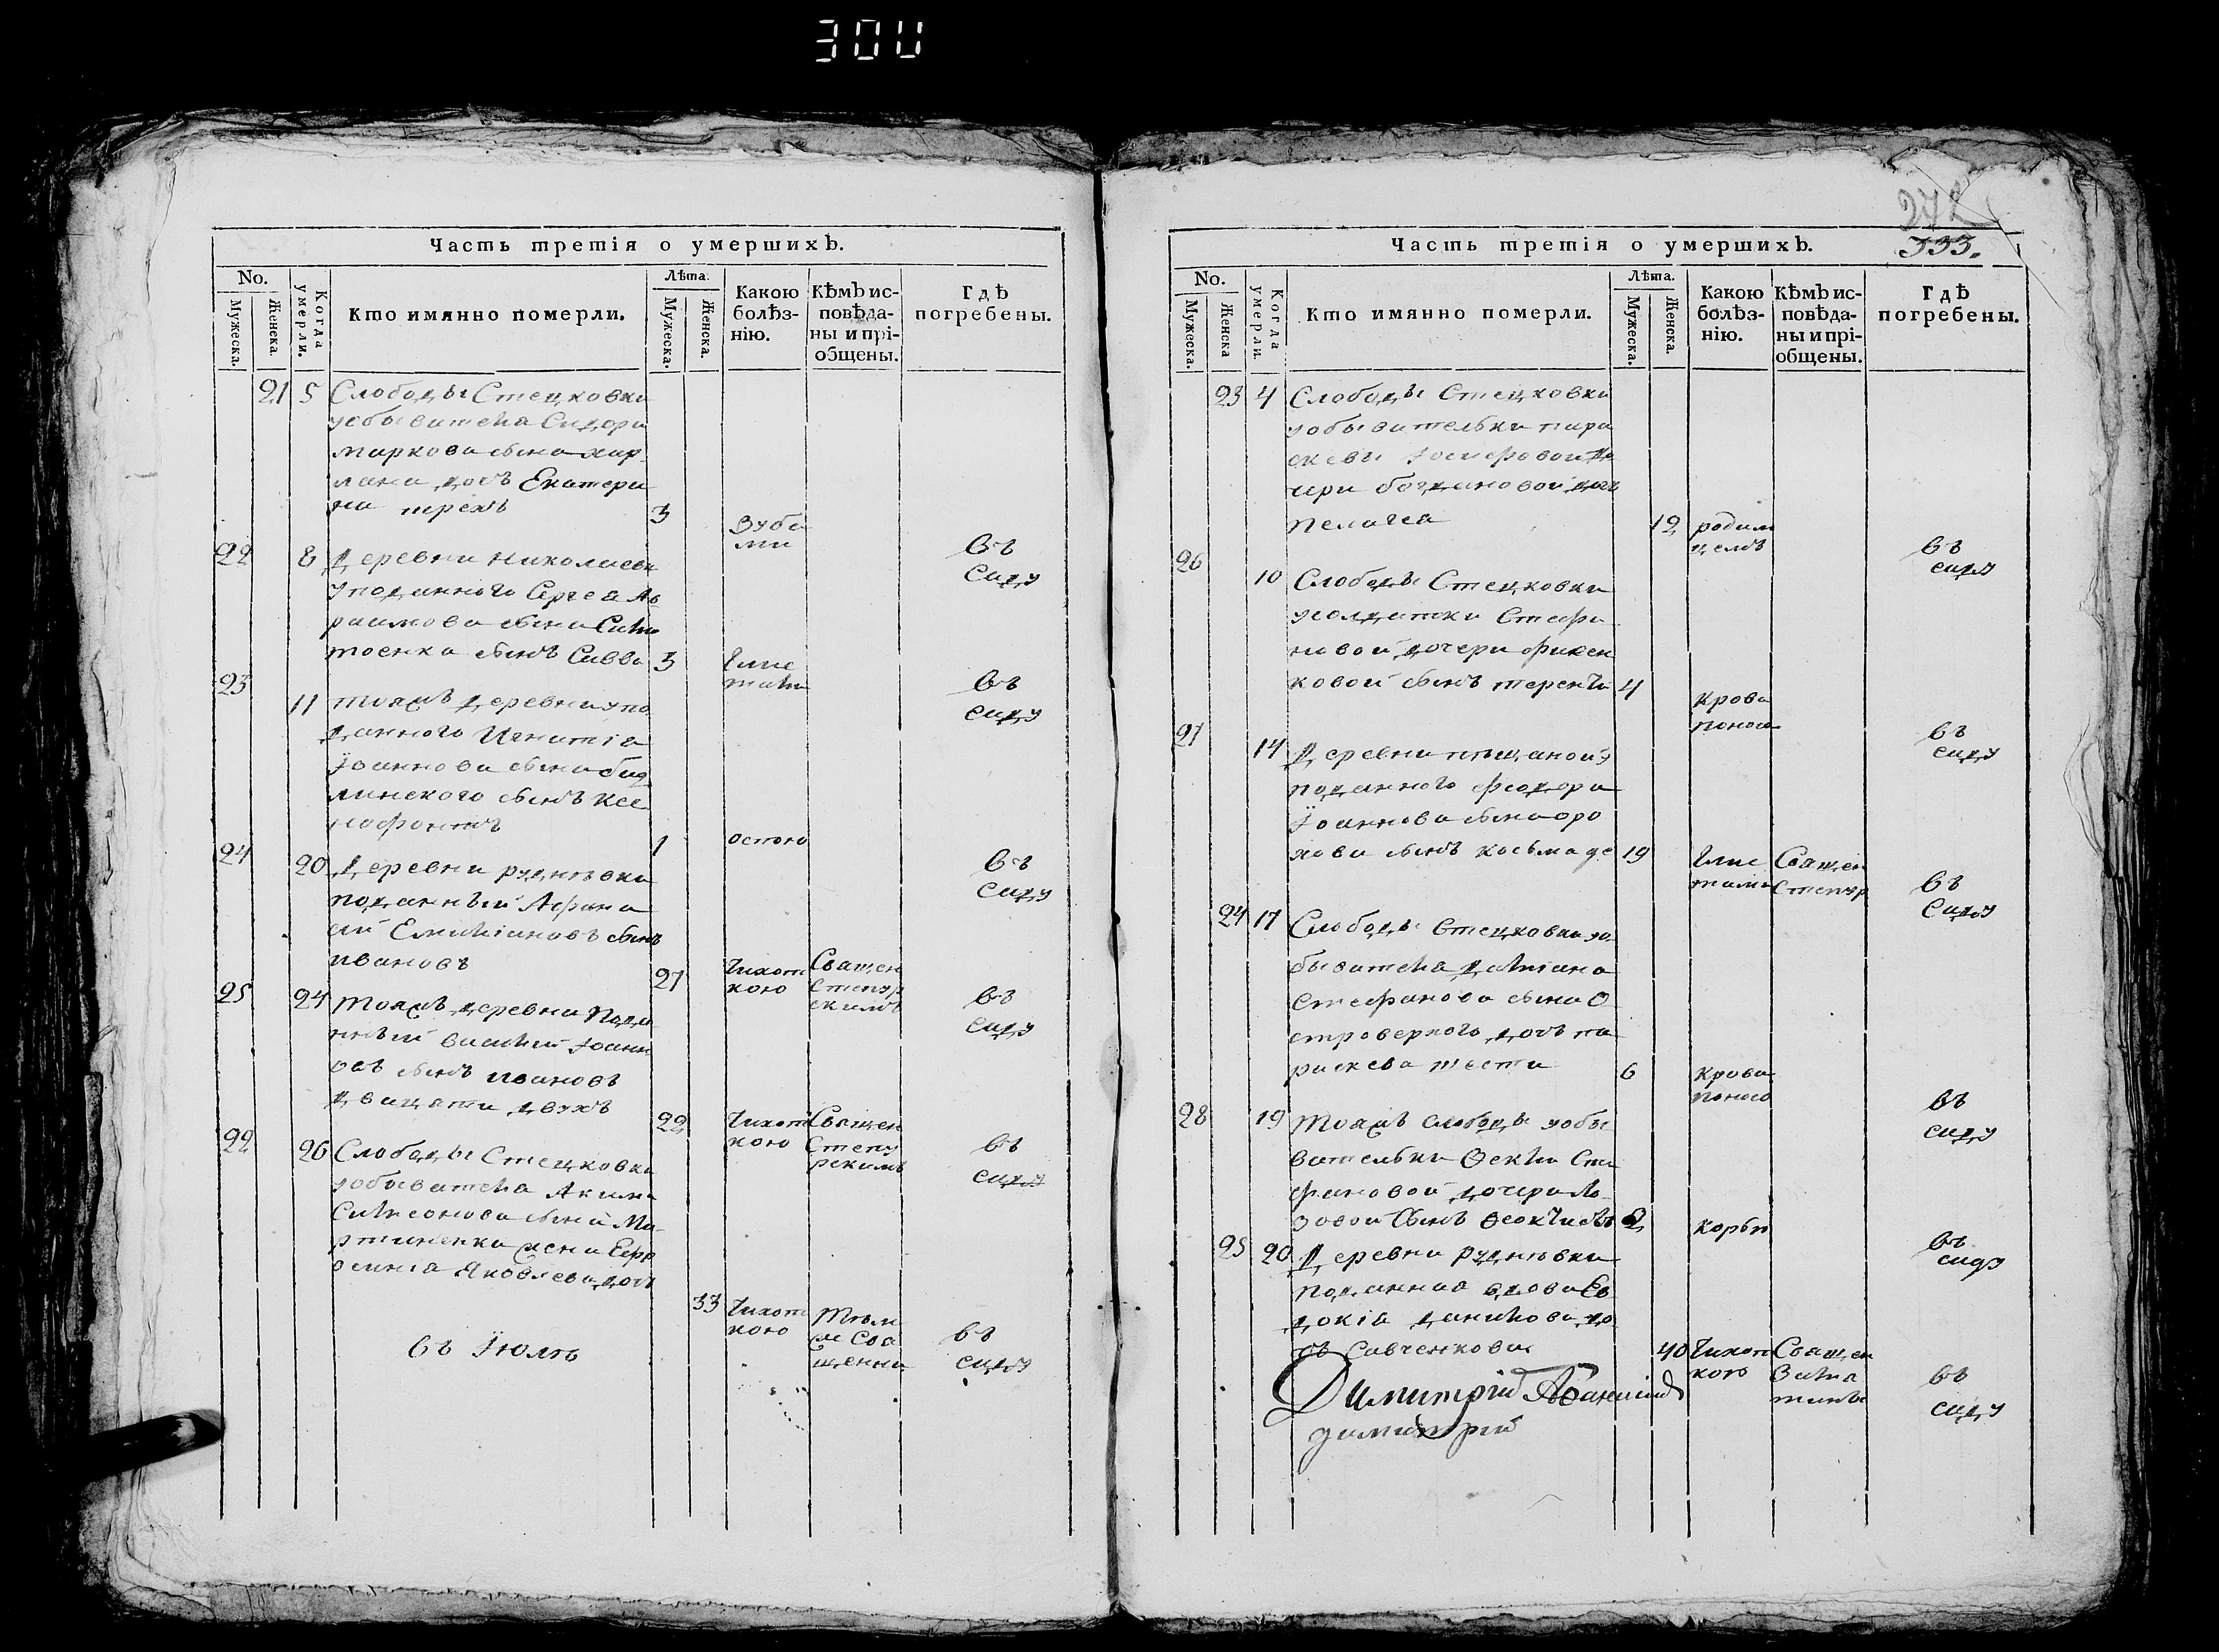 300
Часть третія о умершихъ.
No.
Мужеска.
Женска.
Когда умерли.
Кто имянно померли.
Лѣта.
Мужеска.
Женска.
Какою болѣз-
нію.
Кѣмъ ис-
повѣда-
ны и прі-
общены.
Гдѣ
погребены.
21 5 Слободы Стецковки
уобывателя Сидора
Маркова сына
дочь Екатери
на трехъ 3 Зуба
ми
въ
саду
22 8 Деревни Николаевки
уподанного Сергея Ав
раамова сына
сынъ Савва 3 Глис
тами
въ
саду
23 11 Тояжъ деревни упо
данного Игнатія
Іоаннова сына
линского сынъ Ксе
нофонтъ 1 оспою
въ
саду
24 20 Деревни Рудневки
поданный Афана
сій Емиліановъ сынъ
Ивановъ 27 Чихот
кою
Священ
въ
саду
25 24 Тояжъ деревни Пода
нный Василій Іоанн
овъ сынъ Ивановъ
двацати двухъ 22 Чихот
кою
Священ
въ
саду
22 26 Слободы Стецковки
уобывателя Акима
Симеонова сына Ма
ртиненка жена Евфр
осинія Яковлева дочь
33 Чихот
кою
Темъ
же Свя
щенни
въ
саду
въ Іюлѣ
271
333.
Часть третія о умершихъ.
No.
Мужеска.
Женска
Когда умерли.
Кто имянно померли.
Лѣта.
Мужеска.
Женска.
Какою болѣз-
нію.
Кѣмъ ис-
повѣда-
ны и прі-
общены.
Гдѣ
погребены.
23 4 Слободы Стецковки
уобывательки пара
скевы Іосифовой до
чери Богдановой дочь
Пелагея 12 родим
цемъ
въ
саду
26 10 Слободы Стецковки
усолдатки Стефа
новой дочери
ковой сынъ Терентій 4 крова
поносо
въ
саду
27 14 Деревни пещаной у
поданного Феодора
Іоаннова сына
хова сынъ Козьма 19 Глис
тами
Священ
въ
саду
24 17 Слободы Стецковки уо
бывателя Даміана
Стефанова сына О
строверхого дочь па
раскева шести 6 крова
поносо
въ
саду
28 19 Тояжъ слободы уобы
вательки Феклы Сте
фановой дочери
зовой сынъ Феоктистъ 2 корью
въ
саду
25 20 Деревни Рудневки
поданная вдова Ев
докія данилова до
чь Савченкова 40 Чихот
кою
Священ
въ
саду
Димитрій
димитрій